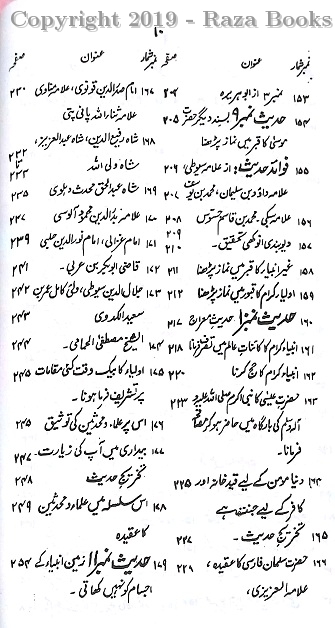 Copyright 2019 - Raza Books
۱۰
نمبر شمار عنوان صفحہ
۱۵۳ نمبر ۳ از ابو ہریرہ ۲۰۴
۱۵۴ حدیث نمبر ۹ بسند دیگر حضرت ۲۰۵
موسیٰ کا قبر میں نماز پڑھنا
۱۵۵ فوائد حدیث: از علامہ سیوطی، ۲۰۶
علامہ داؤد بن سلیمان، محمد بن یوسف ۲۰۷
علامہ سبکی، محمد بن قاسم جسوس ۲۰۸
۲۰۹
۱۵۷ دیوبندی انوکھی تحقیق۔ ۲۱۰
۱۵۸ غیر انبیاء کا قبر میں نماز پڑھنا ۲۱۱
۱۵۹ اولیاء کرام کا قبور میں نماز پڑھنا ۲۱۲
۱۶۰ حدیث نمبر ۱۰ حدیث معراج ۲۱۷
۱۶۱ انبیاء کرام کا کائنات عالم میں تصرف فرمانا ۲۱۸
۱۶۲ انبیاء کرام کا حج کرنا ۲۲۰
۱۶۳ حضرت عیسیٰ کا نبی اکرم صلی اللہ علیہ و ۲۲۳
آلہ وسلم کی بارگاہ میں حاضر ہو کر
فرمانا۔
۱۶۴ دنیا مومن کے لیے قید خانہ اور ۲۲۵
کافر کے لیے جنت ہے
۱۶۵ تخریج حدیث۔ ۲۲۷
۱۶۶ حضرت سلمان فارسی کا عقیدہ، ۲۲۸
علامہ العزیزی،
نمبر شمار عنوان صفحہ
۱۶۷ امام صدر الدین قونوی، علامہ مناوی ۲۳۰
علامہ ثناء اللہ پانی پتی
۱۶۸ شاہ رفیع الدین، شاہ عبدالعزیز، ۲۳۲
شاہ ولی اللہ
۱۶۹ شاہ عبدالحق محدث دہلوی ۲۳۵
۱۷۰ علامہ سید محمود آلوسی ۲۳۷
۱۷۱ امام غزالی، امام نور الدین حلبی ۲۳۹
۱۷۲ قاضی ابوبکر بن عربی۔ ۲۴۱
۱۷۳ جلال الدین سیوطی، ولی کامل عمر بن ۲۴۲
سعید الکدوی ۲۴۳
۱۷۴ الشیخ مصطفی الحمامی۔ ۲۴۴
۱۷۵ اولیاء کا بیک وقت کئی مقامات ۲۴۵
پر تشریف فرما ہونا۔
۱۷۶ اس پر علماء و محدثین کی توثیق ۲۴۵
۱۷۷ بیداری میں آپ کی زیارت۔ ۲۴۷
تخریج حدیث ۲۴۸
۱۷۸ اس سلسلہ میں علماء و محدثین ۲۴۹
کا عقیدہ
۱۷۹ حدیث نمبر ۱۱ زمین انبیاء کے ۲۵۴
اجسام کو نہیں کھاتی۔